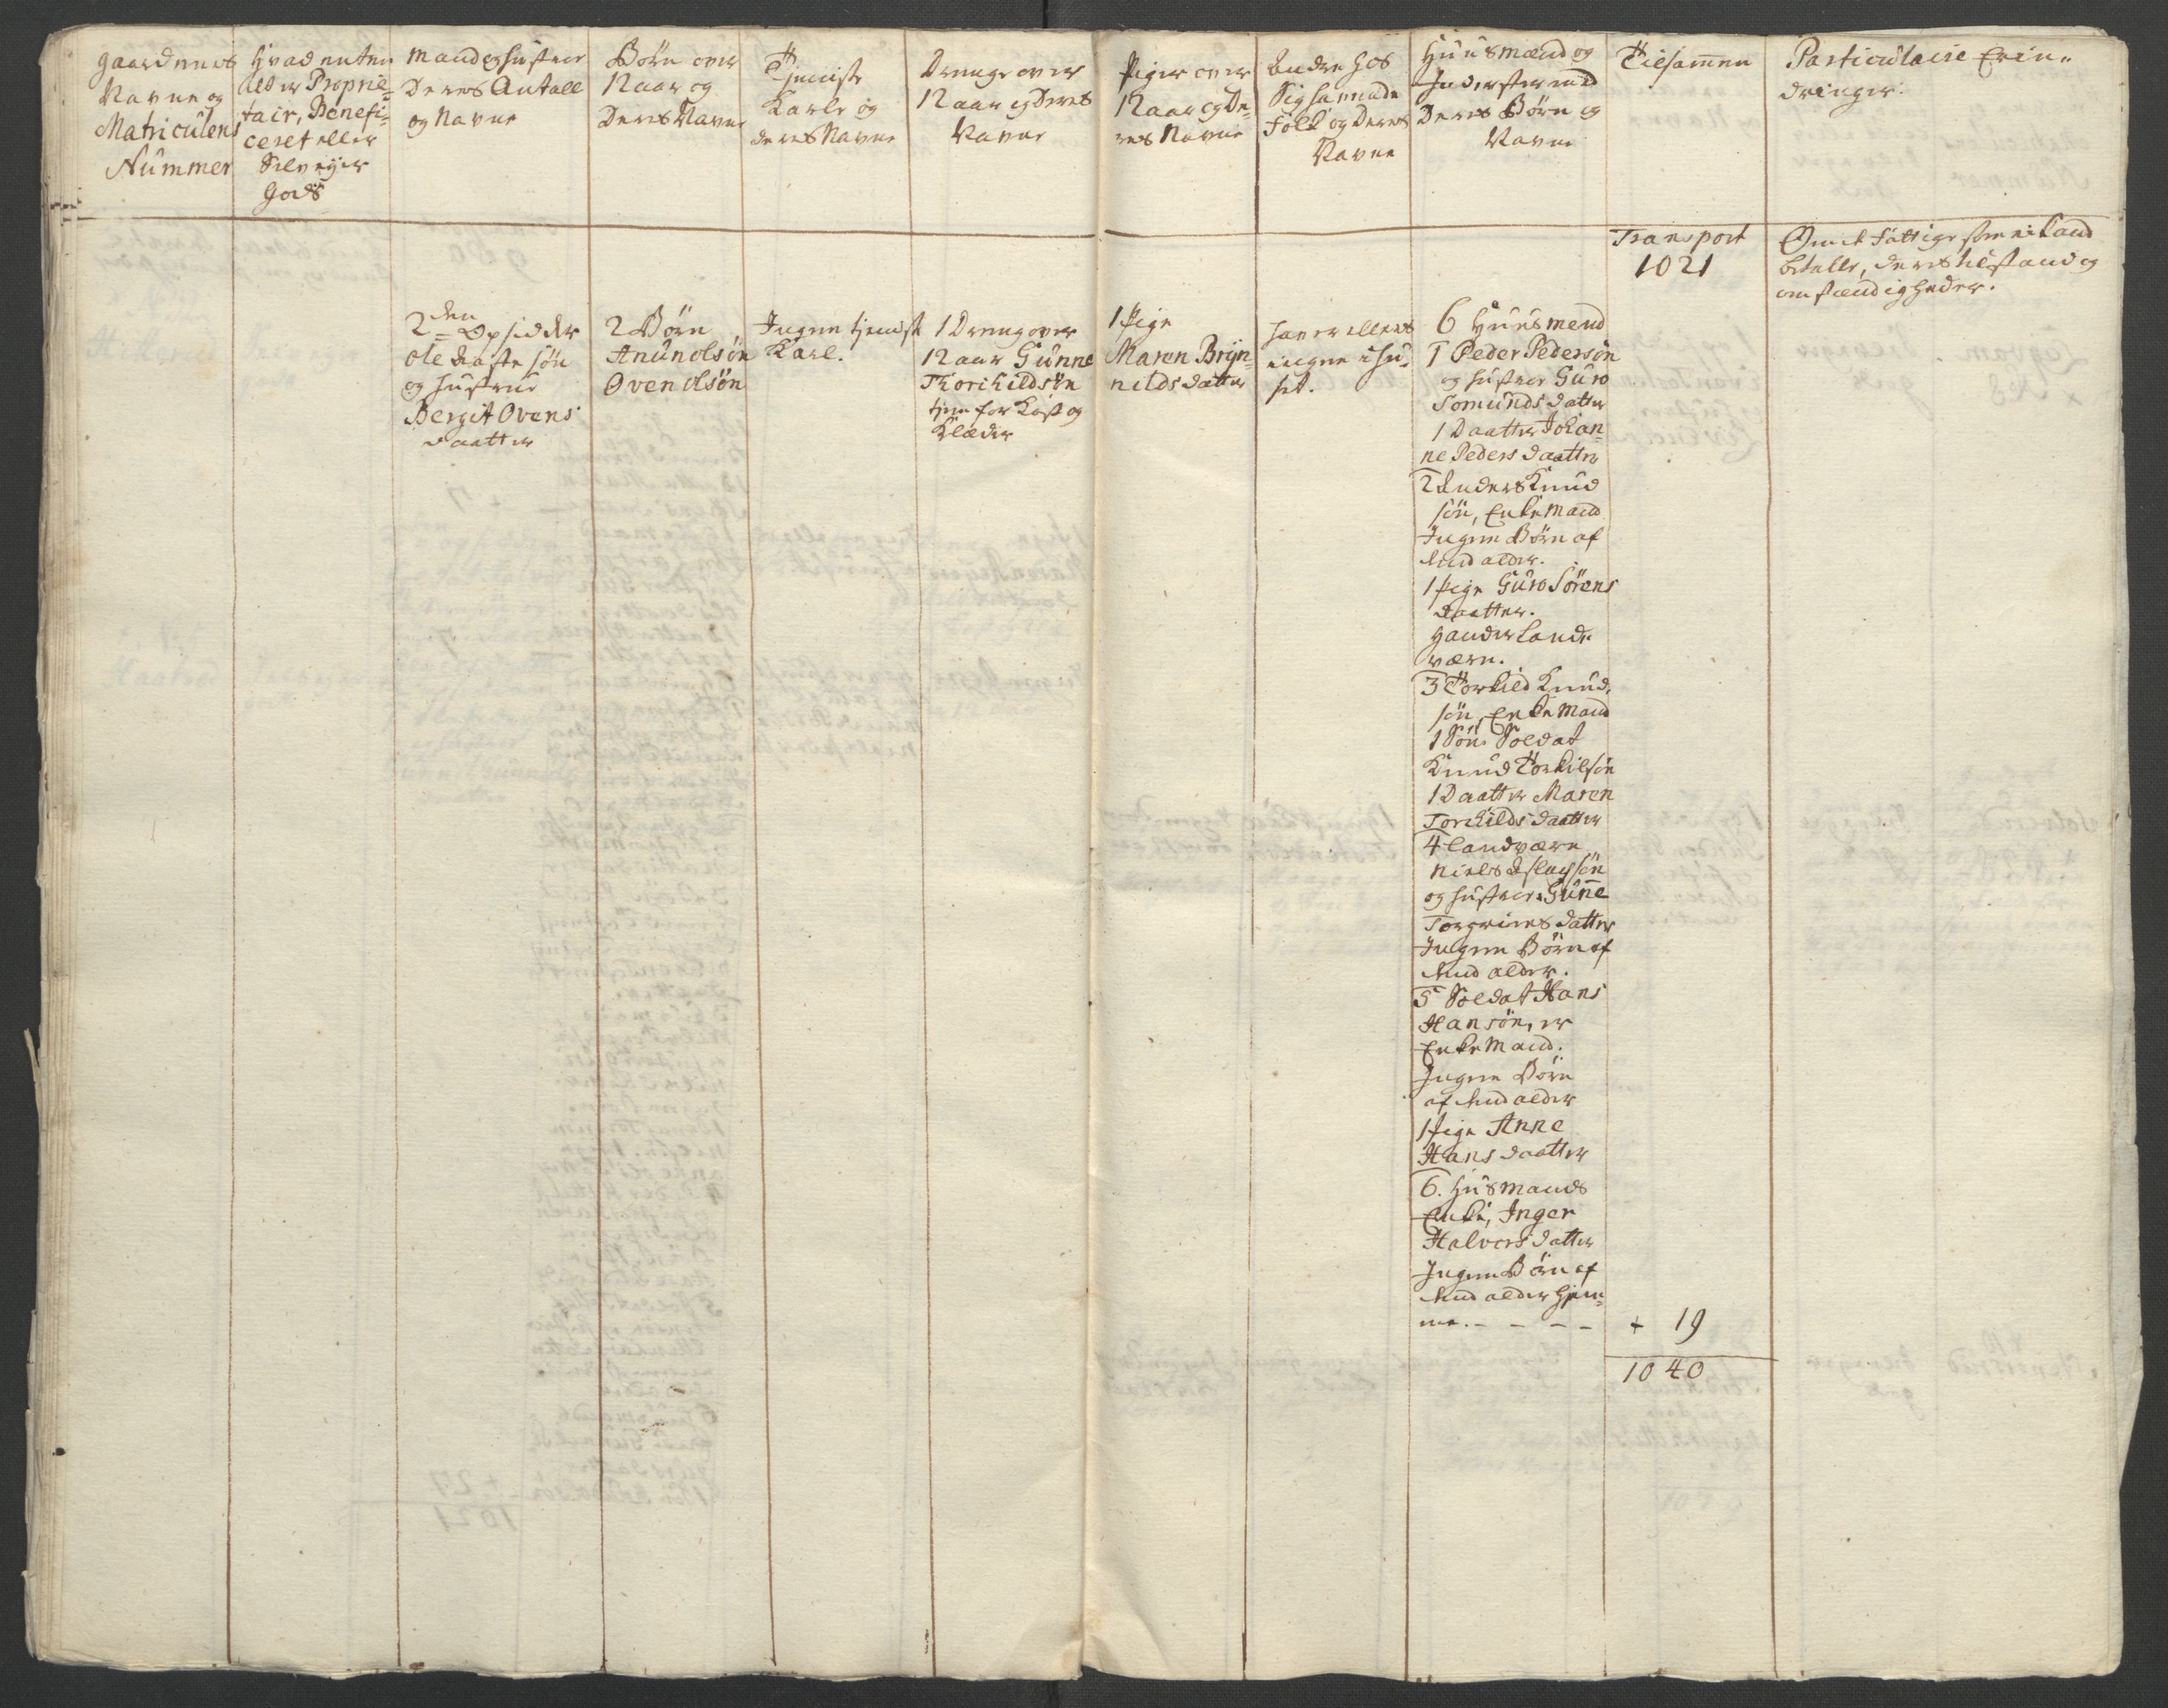 Gaardenes
Navne og
Matriculens
Nummer
Hvad enten
det er Proprie=
tair, Benefi=
ceret eller
Selveyer
Gods
Mand og Hustrue
Deres Antall
og Navne
Börn over
12 aar og
Deres Navne
Tjeniste
Karle og
deres Navne
Drenge over
12 aar og Deres
Navne
Piger over
12 aar og De=
res Navne
Andre hos
Sig havende
Folk og Deres
Navne
Huusmænd og
Inderster med
Deres Börn og
Navne
Tilsammen
Particulaire Erin=
dringer.
Transport
1021
Om de Fattige som ei kand
betalle, deres tilstand og
omstændigheder.
2den Opsidder
Ole Aaste sön
og Hustrue
Bergit Ovens
daatter
2 Börn
Anun olsön
Oven olsön
Ingen tjenist
Karl.
1 Dreng over
12 aar Gunne
Thorchildsön
tjene for Kost og
Klæder
1 Pige
Maren Bryn=
nilds datter
haver ellers
ingen i Hu=
set.
6 Huusmend
1 Peder Pedersön
og Hustrue Guro
Somunds datter
1 Daatter Johan=
ne Peders daatter
2 Anders Knud
sön, Enke Mand
Ingen Börn af
bem.d alder.
1 Pige Guro Sörens
daatter.
Hand er Land
værn.
3 Torkild Knud
sön, Enke Mand
1 Sön Soldat
Knud Torkilsön
1 Daatter Maren
Torchilds daatter
4 Landværn
Niels Aslachsön
og Hustrue Gunne
Torgrimes datter
Ingen Börn af
bem.d alder.
5 Soldat Hans
Hansön, er
Enke Mand.
Ingen Börn
af bem.d alder
1 Pige Anne
Hans daatter
6. Husmands
Enke, Inger
Halvors datter
Ingen Börn af
bem.d alder Hjem=
me. - - - -
+ 19
1040